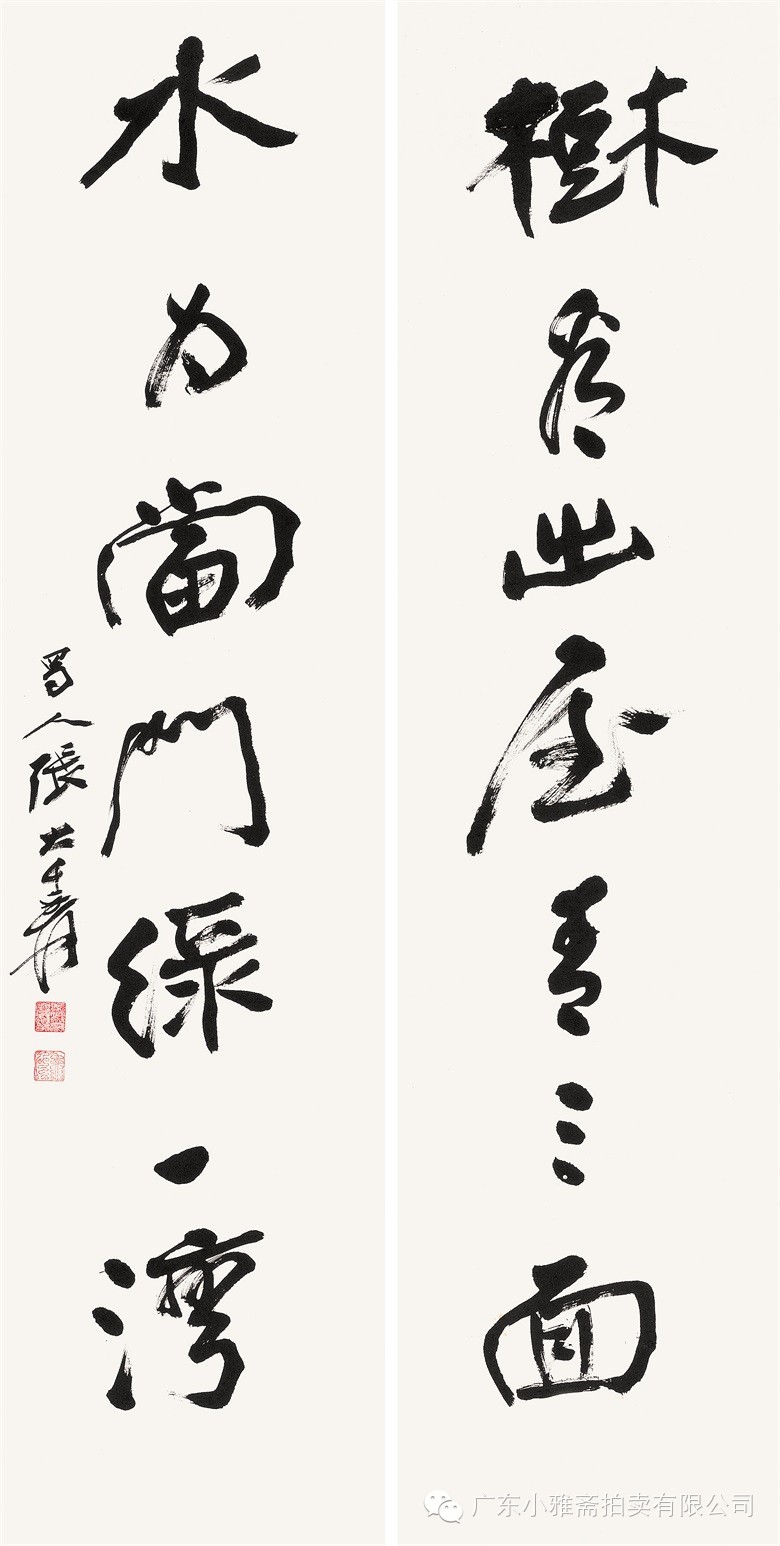 樹出屋青三面
水為當門綠一灣
蜀人張大千爰
广东小雅斋拍卖有限公司